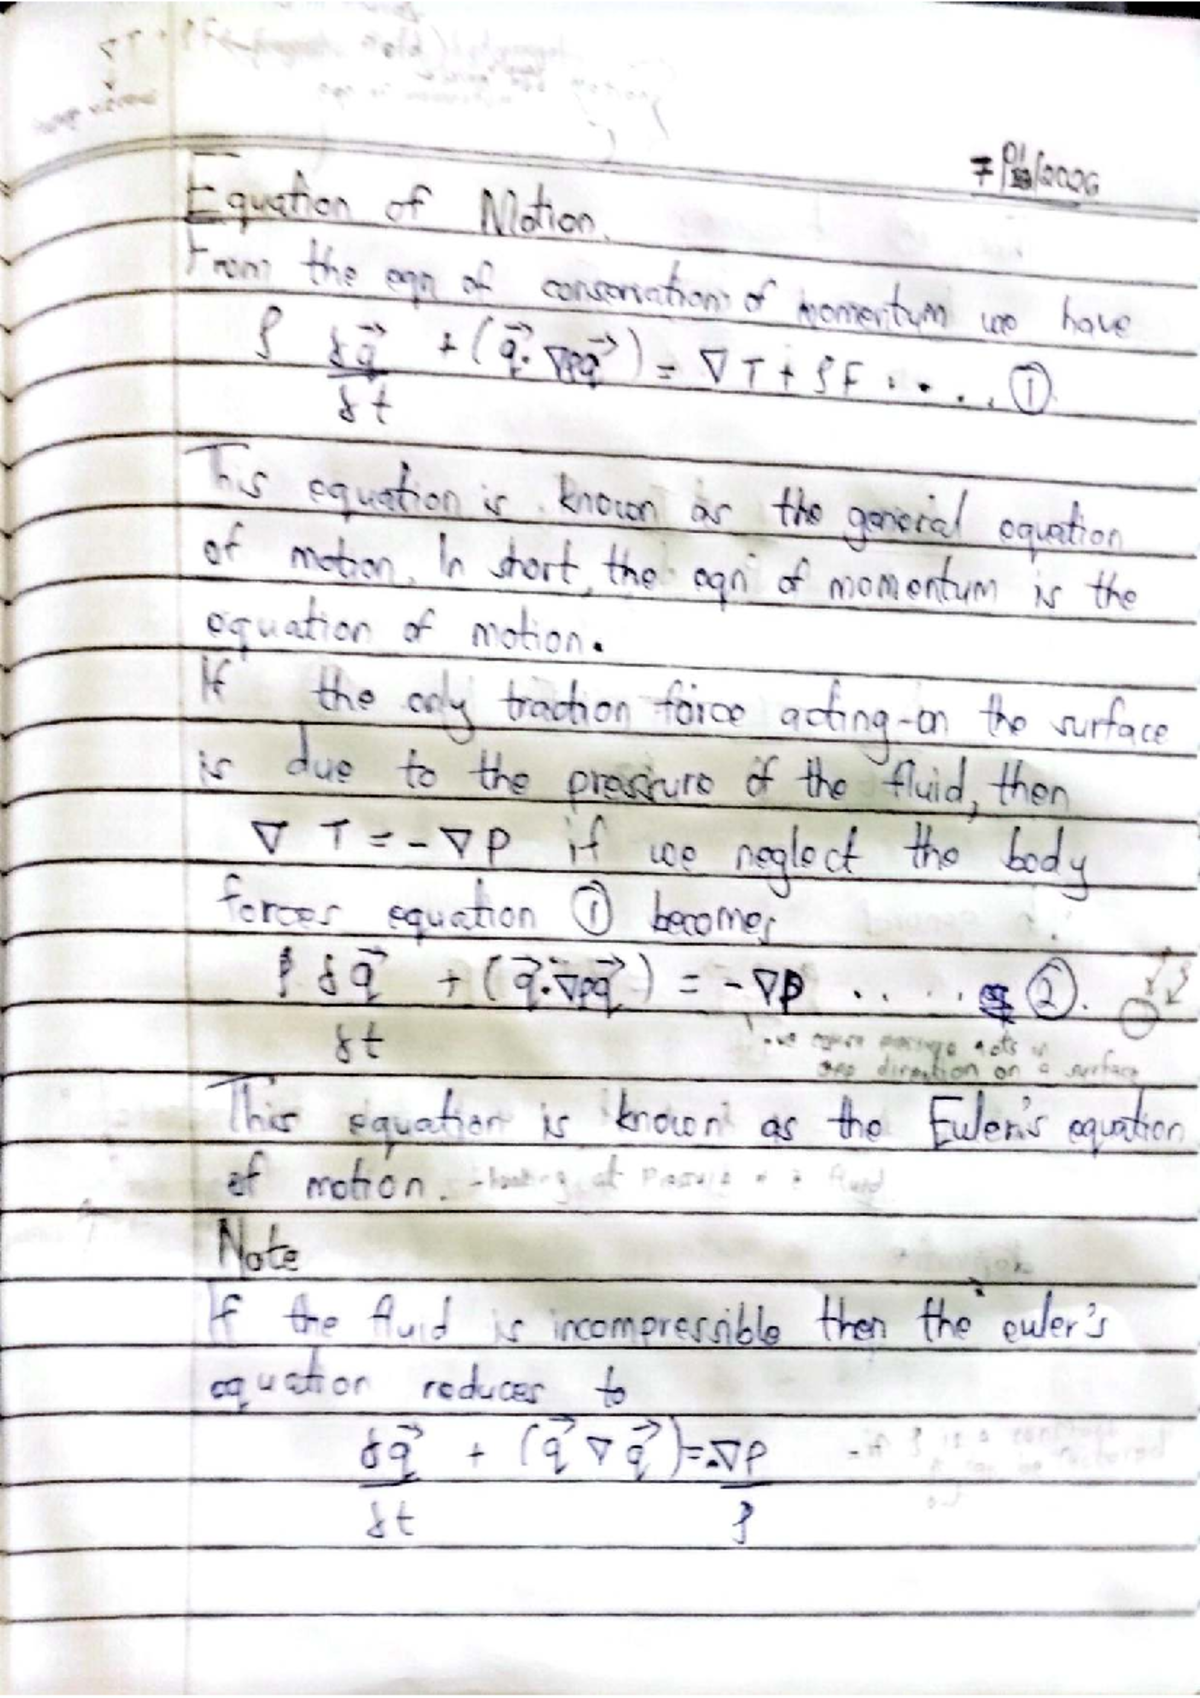 7/01/2026
Equation of Motion.
From the eqn of conservations of momentum we have
ρ δq⃗ + (q⃗. ∇ρq⃗) = ∇T + ρF ..... ①
δt
This equation is known as the general equation
of motion. In short, the eqn of momentum is the
equation of motion.
If the only traction force acting-on the surface
is due to the pressure of the fluid, then
∇ T = - ∇P if we neglect the body
forces equation ① becomes
ρ δq⃗ + (q⃗.∇ρq⃗) = - ∇P ..... ②.
δt
-ve cause pressure acts in
opp direction on a surface
This equation is known as the Euler's equation
of motion. - looking at Pressure a fluid
Note
If the fluid is incompressible then the euler's
equation reduces to
δq⃗ + (q⃗ ∇ q⃗) = -∇P
δt ρ
- if ρ is a constant
it can be factored
out